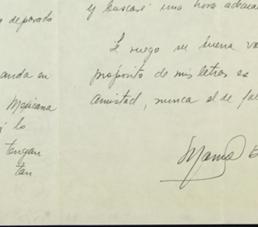 deporado
anda en
Mexicana
lo
tengan
tan
y buscaré una hora adecua
Le ruego su buena vo
propósito de mis letras es
amistad, nunca el de fal